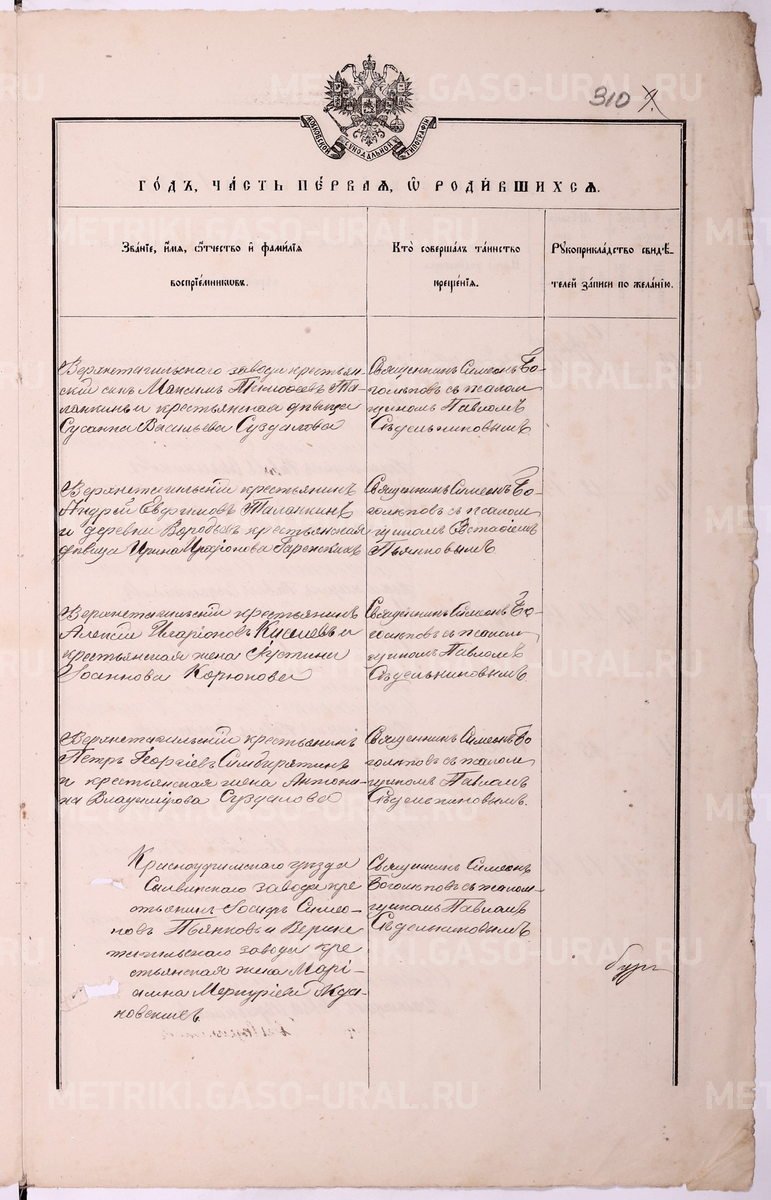 310
МОСКОВСКОЙ СѴНОДАЛЬНОЙ ТИПОГРАФІИ
ГО́ДЪ, ЧА́СТЬ ПЕ́РВАЯ, Ѽ РОДИ́ВШИХСЯ.
Зва́нїе, и҆́мя, ѻ҆́тчество и҆ фами́лїя
воспрїе́мниковъ.
Кто̀ соверша́лъ та́инство
креще́нїя.
Рꙋкоприкла́дство свидѣ́-
телей за́писи по жела́нїю.
Верхнетагильскаго завода крестьян-
скій сынъ Максимъ Тимофеевъ Та-
ланкинъ и крестьянская дѣвица
Сусанна Васильева Суздалова
Священникъ Симеонъ Бо-
голюповъ съ псалом-
щикомъ Павломъ
Сѣдельниковымъ
Верхнетагильскій крестьянинъ
Андрей Евфимовъ Таланкинъ
и деревни Воробьихъ крестьянская
дѣвица Ирина Иларіонова
Священникъ Симеонъ Бо-
голюповъ съ псалом-
щикомъ Евстафіемъ
Пьянковымъ
Верхнетагильскій крестьянинъ
Алексій Иларіоновъ Киселевъ и
крестьянская жена Іустина
Іоаннова Корюкова
Священникъ Симеонъ Бо-
голюповъ съ псалом-
щикомъ Павломъ
Сѣдельниковымъ
Верхнетагильскій крестьянинъ
Петръ Георгіевъ Симбирятинъ
и крестьянская жена Антони-
на Владимірова Суздалова
Священникъ Симеонъ Бо
голюповъ съ псалом
щикомъ Павломъ
Сѣдельниковымъ.
Красноуфимскаго уѣзда
Сылвинскаго завода кре
стьянинъ Іосифъ Симео-
новъ Пьянковъ и Верхне
тагильскаго завода кре
стьянская жена Марі-
амна Меркуріева
Священникъ Симеонъ
Боголюповъ съ псалом-
щикомъ Павломъ
Сѣдельниковымъ
METRIKI.GASO-URAL.RU